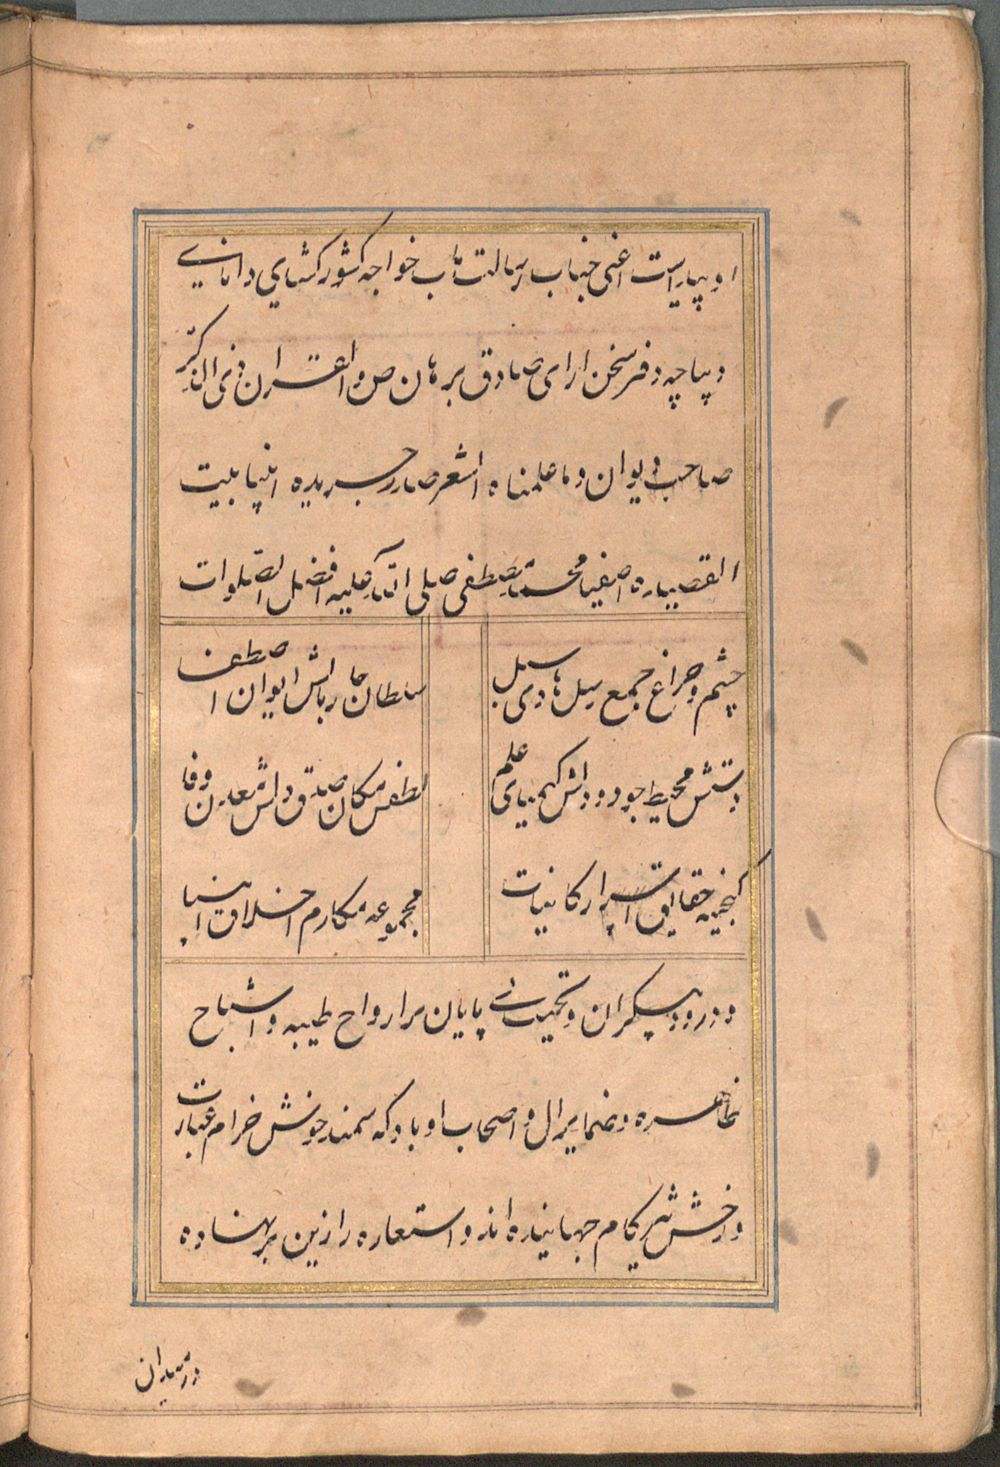 او بیاراست اعنی جناب رسالت مآب خواجه کشور کشای دانائی
دیباچه دفتر سخن ارای صادق برهان ص و القران ذی الذکر
صاحب دیوان وما علمناه الشعر صدر جریده انبیا بیت
القصیده اصفیا محمد مصطفی صلی الله علیه افضل الصلوات
چشم و چراغ جمع رسل هادی سبل
سلطان چار بالش ایوان اصطفا
دستش محیط جود و دلش کیمیای علم
لطفش مکان صدق و دلش معدن وفا
گنجینه حقایق اسرار کاینات
مجموعه مکارم اخلاق انبیا
و درود بیکران و تحیت بی پایان بر ارواح طیبه و اشباح
طاهره و ضمایر ال و اصحاب او باد که سمند خوش خرام عبارت
و رخش تیز کام جهانیده اند و استعاره را زین بر نهاده
در میدان